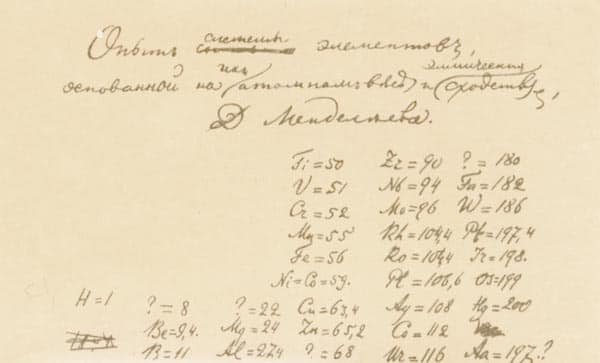 Опытъ системы элементовъ,
основанной на ихъ атомномъ вѣсѣ и химическомъ сходствѣ,
Д Менделѣева.
Ti=50 Zr=90 ?=180
V=51 Nb=94 Ta=182
Cr=52 Mo=96 W=186
Mn=55 Rh=104,4 Pt=197,4
Fe=56 Ru=104,4 Ir=198.
Ni=Co=59. Pl=106,6 Os=199
H=1 ?=8 ?=22 Cu=63,4 Ag=108 Hg=200
Be=9,4. Mg=24 Zn=65,2 Cd=112
B=11 Al=27,4 ?=68 Ur=116 Au=197?